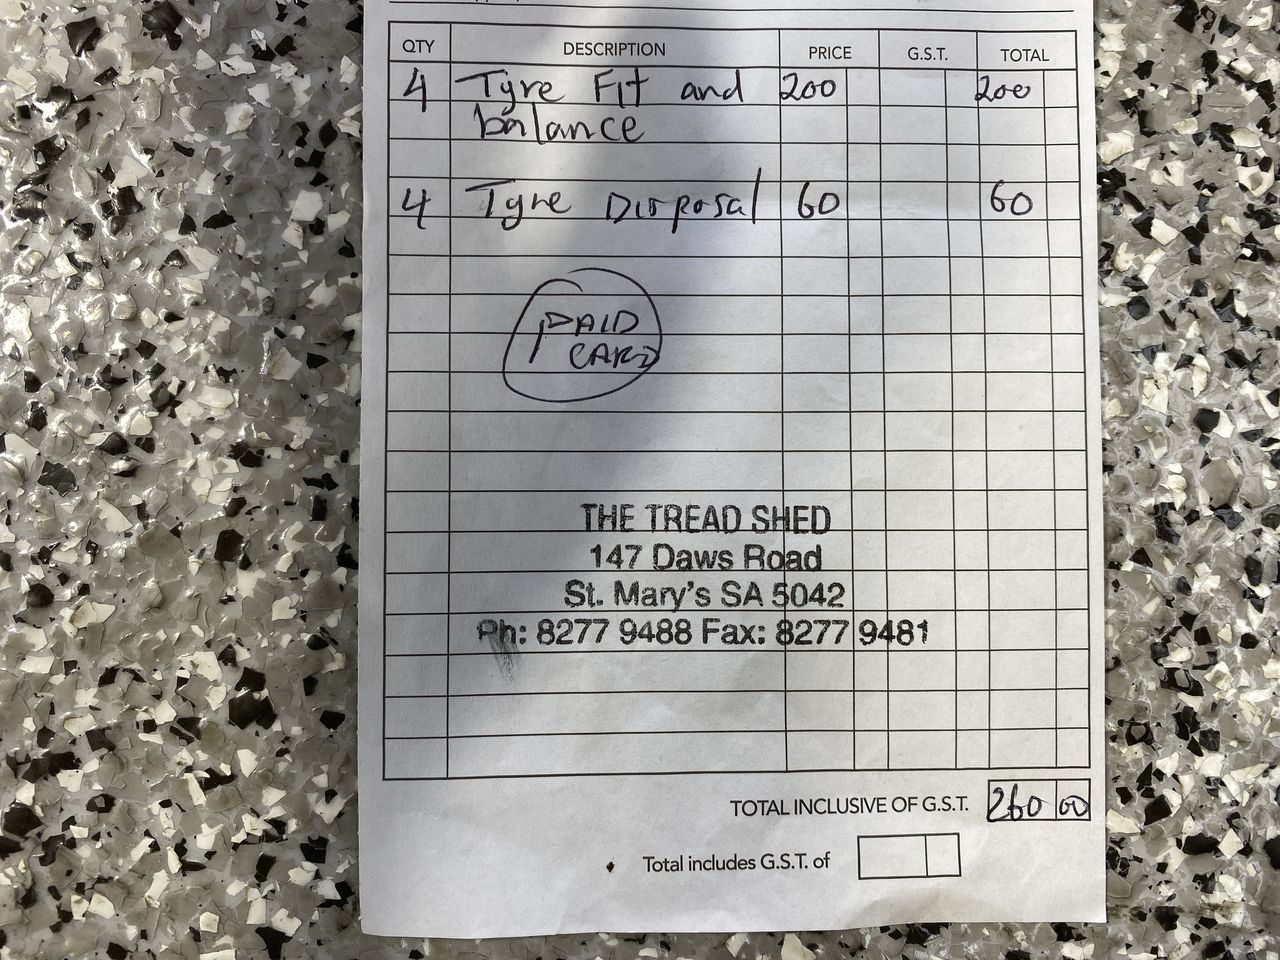 QTY DESCRIPTION PRICE G.S.T. TOTAL
4 Tyre Fit and 200 200
balance
4 Tyre Disposal 60 60
PAID
CARD
THE TREAD SHED
147 Daws Road
St. Mary's SA 5042
Ph: 8277 9488 Fax: 8277 9481
TOTAL INCLUSIVE OF G.S.T. 260 00
Total includes G.S.T. of